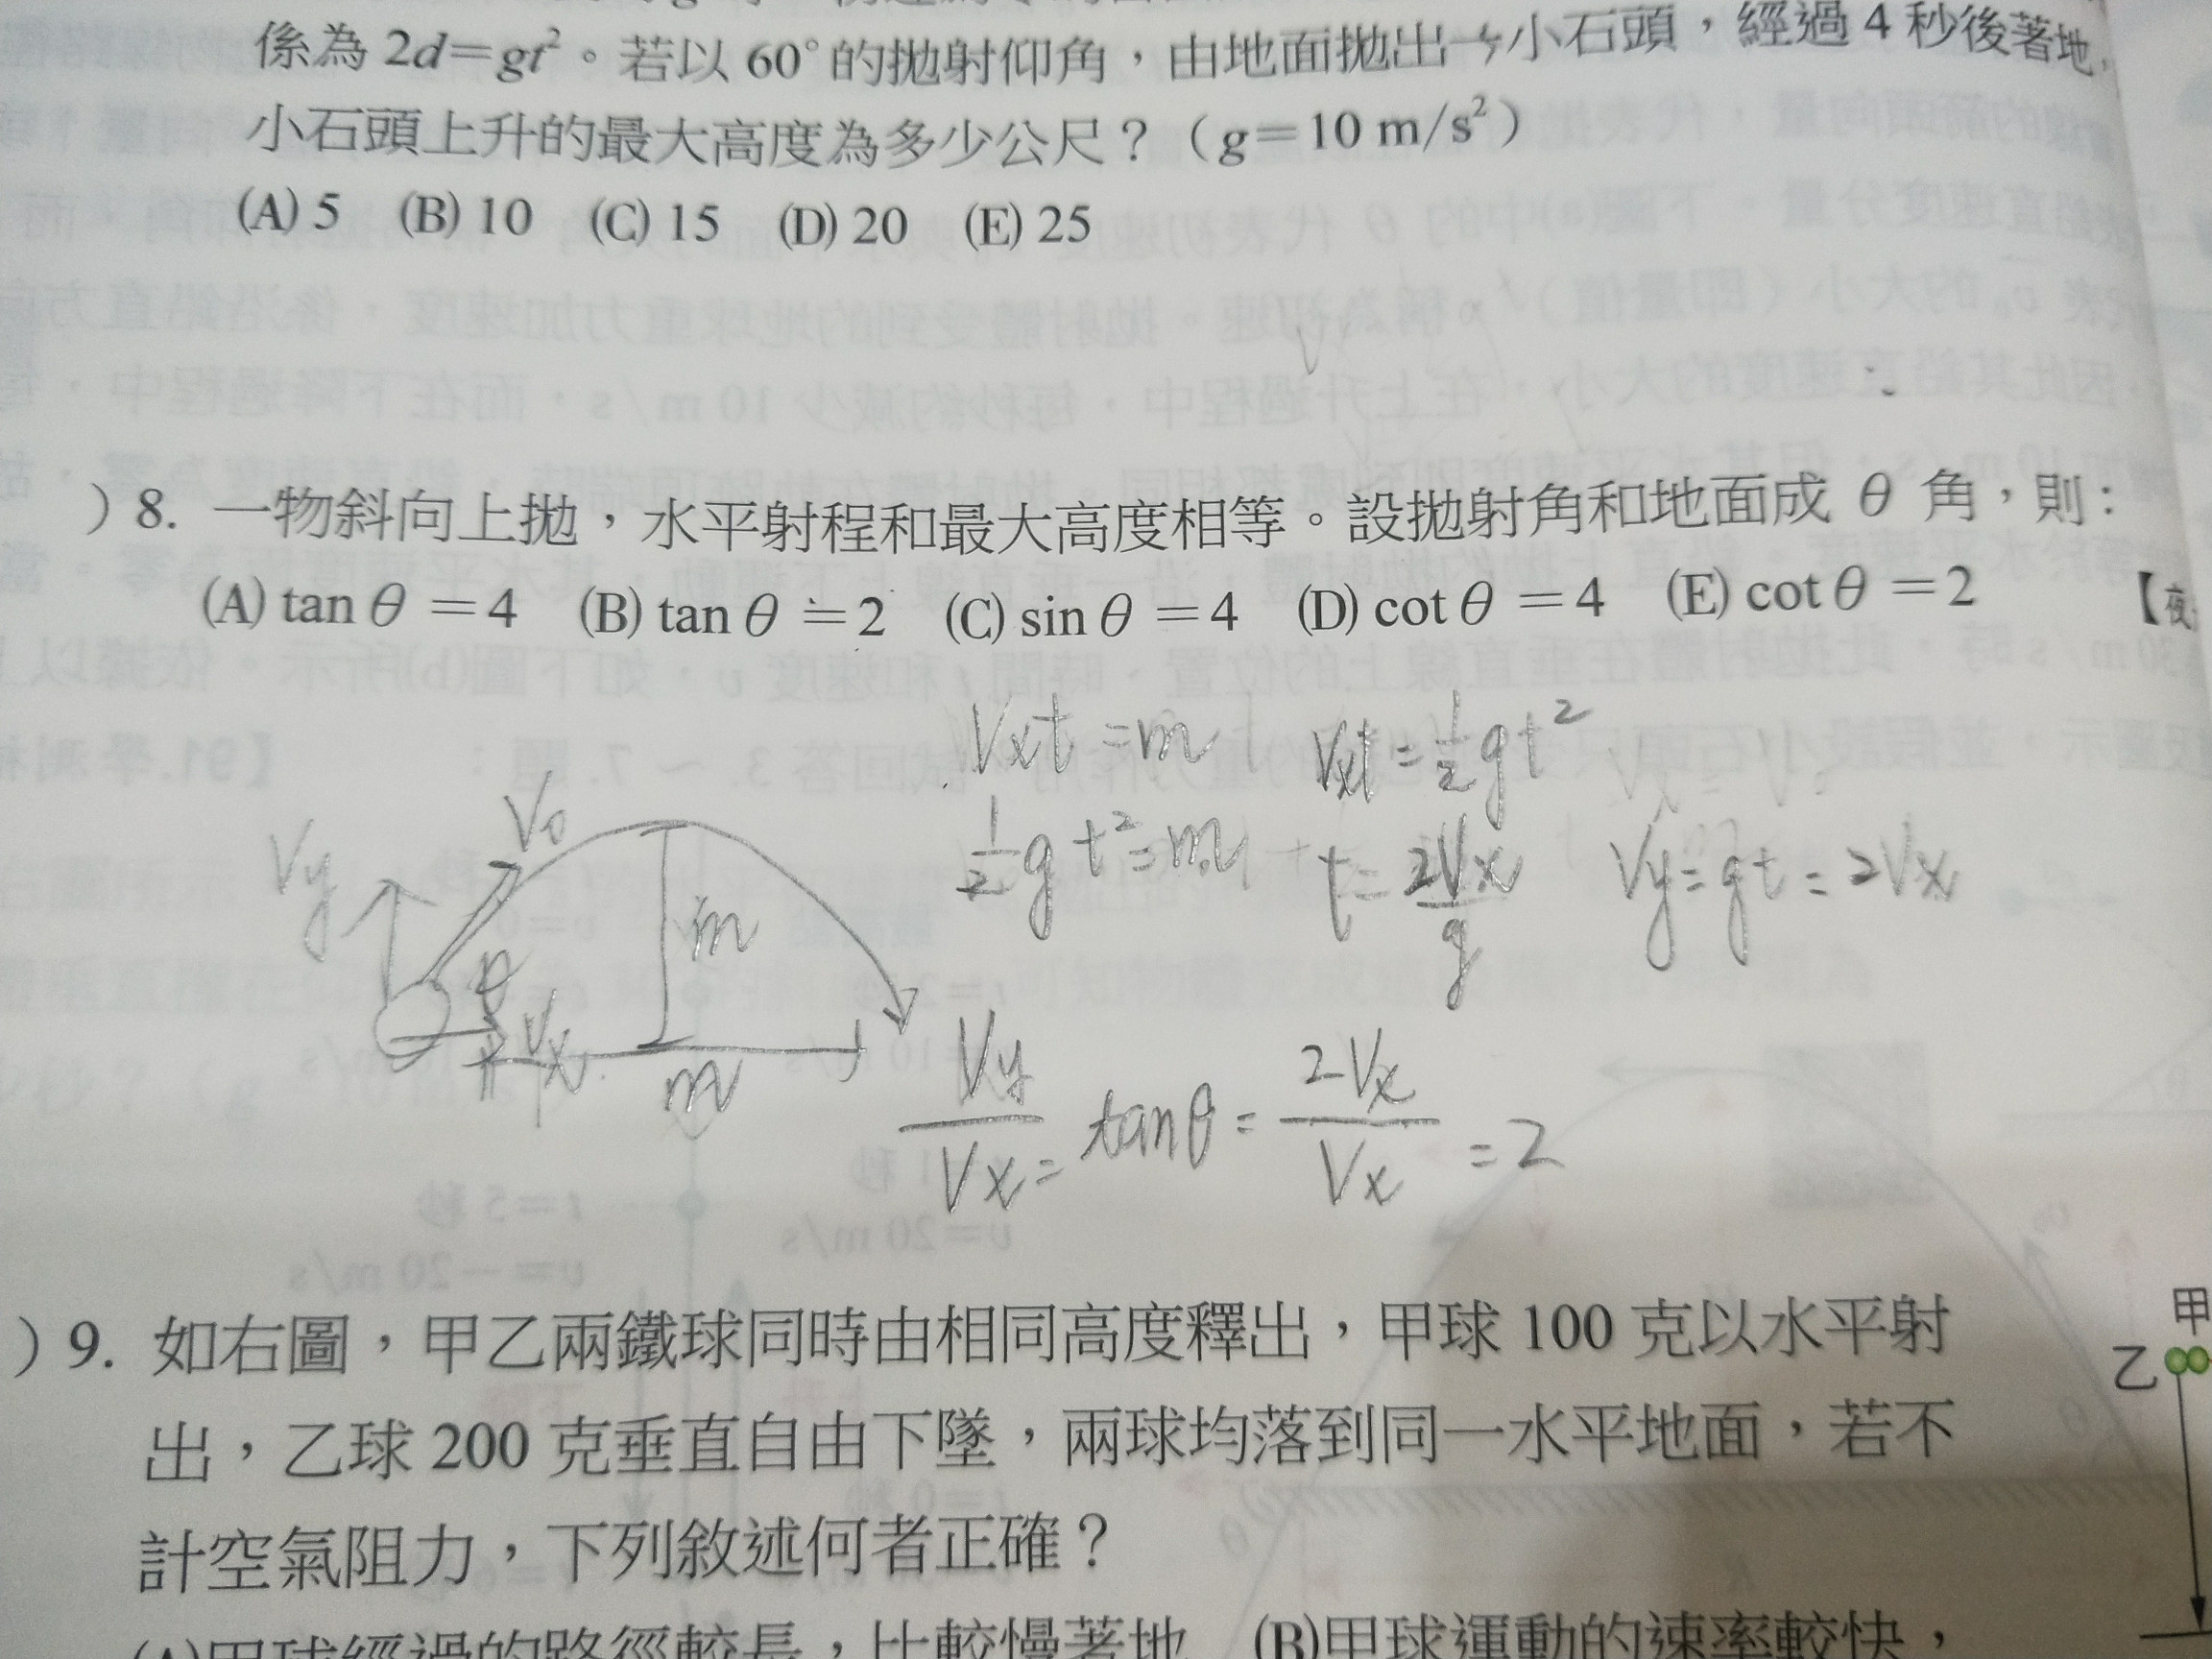 係為 2d=gt²。若以 60°的拋射仰角，由地面拋出一小石頭，經過 4 秒後著地，
小石頭上升的最大高度為多少公尺？（g=10 m/s²）
(A) 5 (B) 10 (C) 15 (D) 20 (E) 25
）8. 一物斜向上拋，水平射程和最大高度相等。設拋射角和地面成 θ 角，則：
(A) tan θ =4 (B) tan θ =2 (C) sin θ =4 (D) cot θ =4 (E) cot θ =2 【夜
Vxt =m Vxt = 1/2 gt²
1/2 g t² = m t= 2Vx/g Vy= gt = 2Vx
Vy V0 m
θ Vx m
Vy/Vx = tanθ = 2Vx/Vx = 2
）9. 如右圖，甲乙兩鐵球同時由相同高度釋出，甲球 100 克以水平射
出，乙球 200 克垂直自由下墜，兩球均落到同一水平地面，若不
計空氣阻力，下列敘述何者正確？
(A)甲球經過的路徑較長，比較慢著地 (B)甲球運動的速率較快，
甲
乙